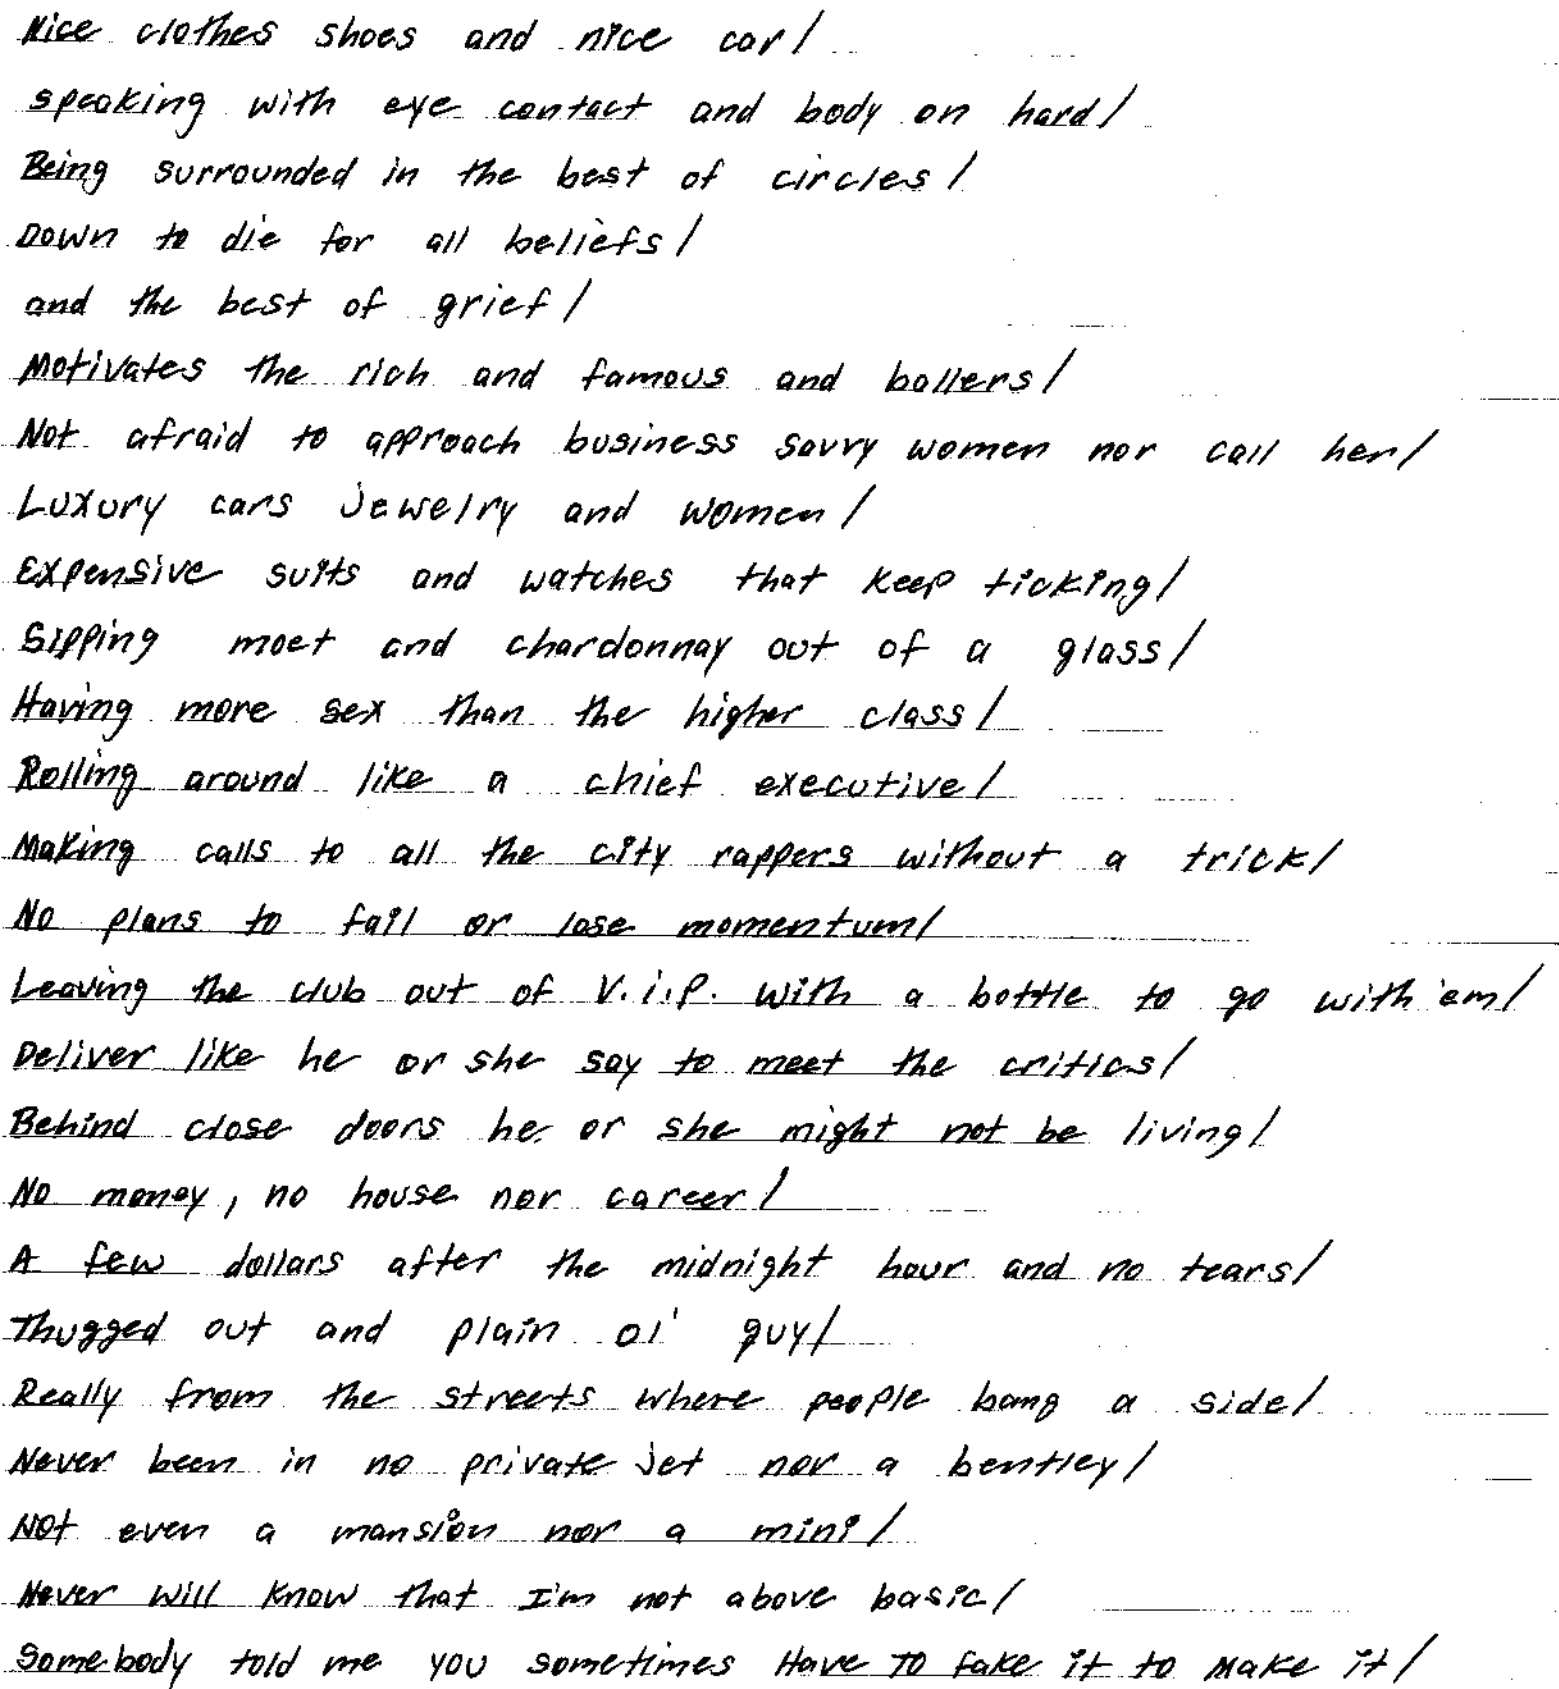 Nice clothes shoes and nice car/
speaking with eye contact and body on hard/
Being surrounded in the best of circles/
Down to die for all beliefs/
and the best of grief/
Motivates the rich and famous and ballers/
Not afraid to approach business savvy women nor call her/
Luxury cars jewelry and women/
Expensive suits and watches that keep ticking/
Sipping moet and chardonnay out of a glass/
Having more sex than the higher class/
Rolling around like a chief executive/
Making calls to all the city rappers without a trick/
No plans to fail or lose momentum/
Leaving the club out of V.i.P. with a bottle to go with 'em/
Deliver like he or she say to meet the critics/
Behind close doors he or she might not be living/
No money, no house nor career/
A few dollars after the midnight hour and no tears/
Thugged out and plain ol' guy/
Really from the streets where people bang a side/
Never been in no private jet nor a bentley/
Not even a mansion nor a mini/
Never will know that I'm not above basic/
Somebody told me you sometimes Have To fake it to Make it/